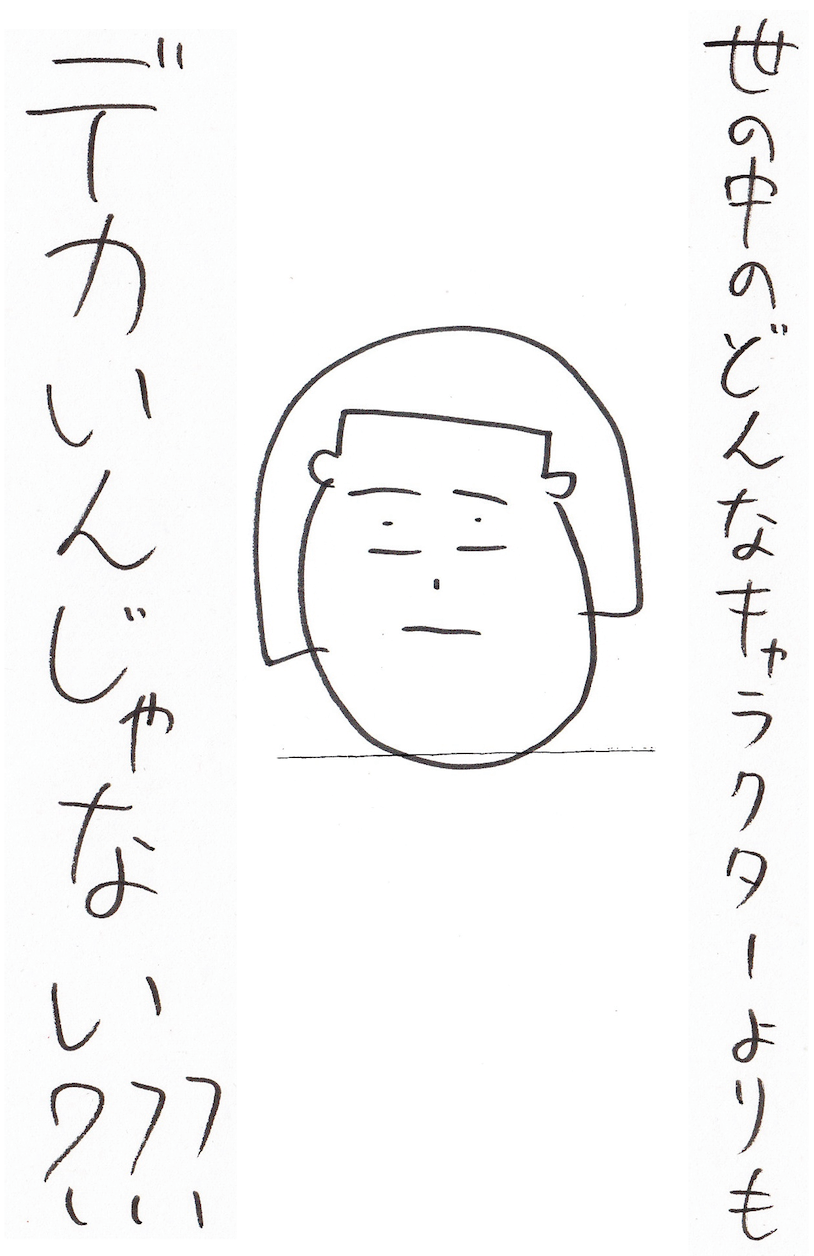 世の中のどんなキャラクターよりも
デカいんじゃない???